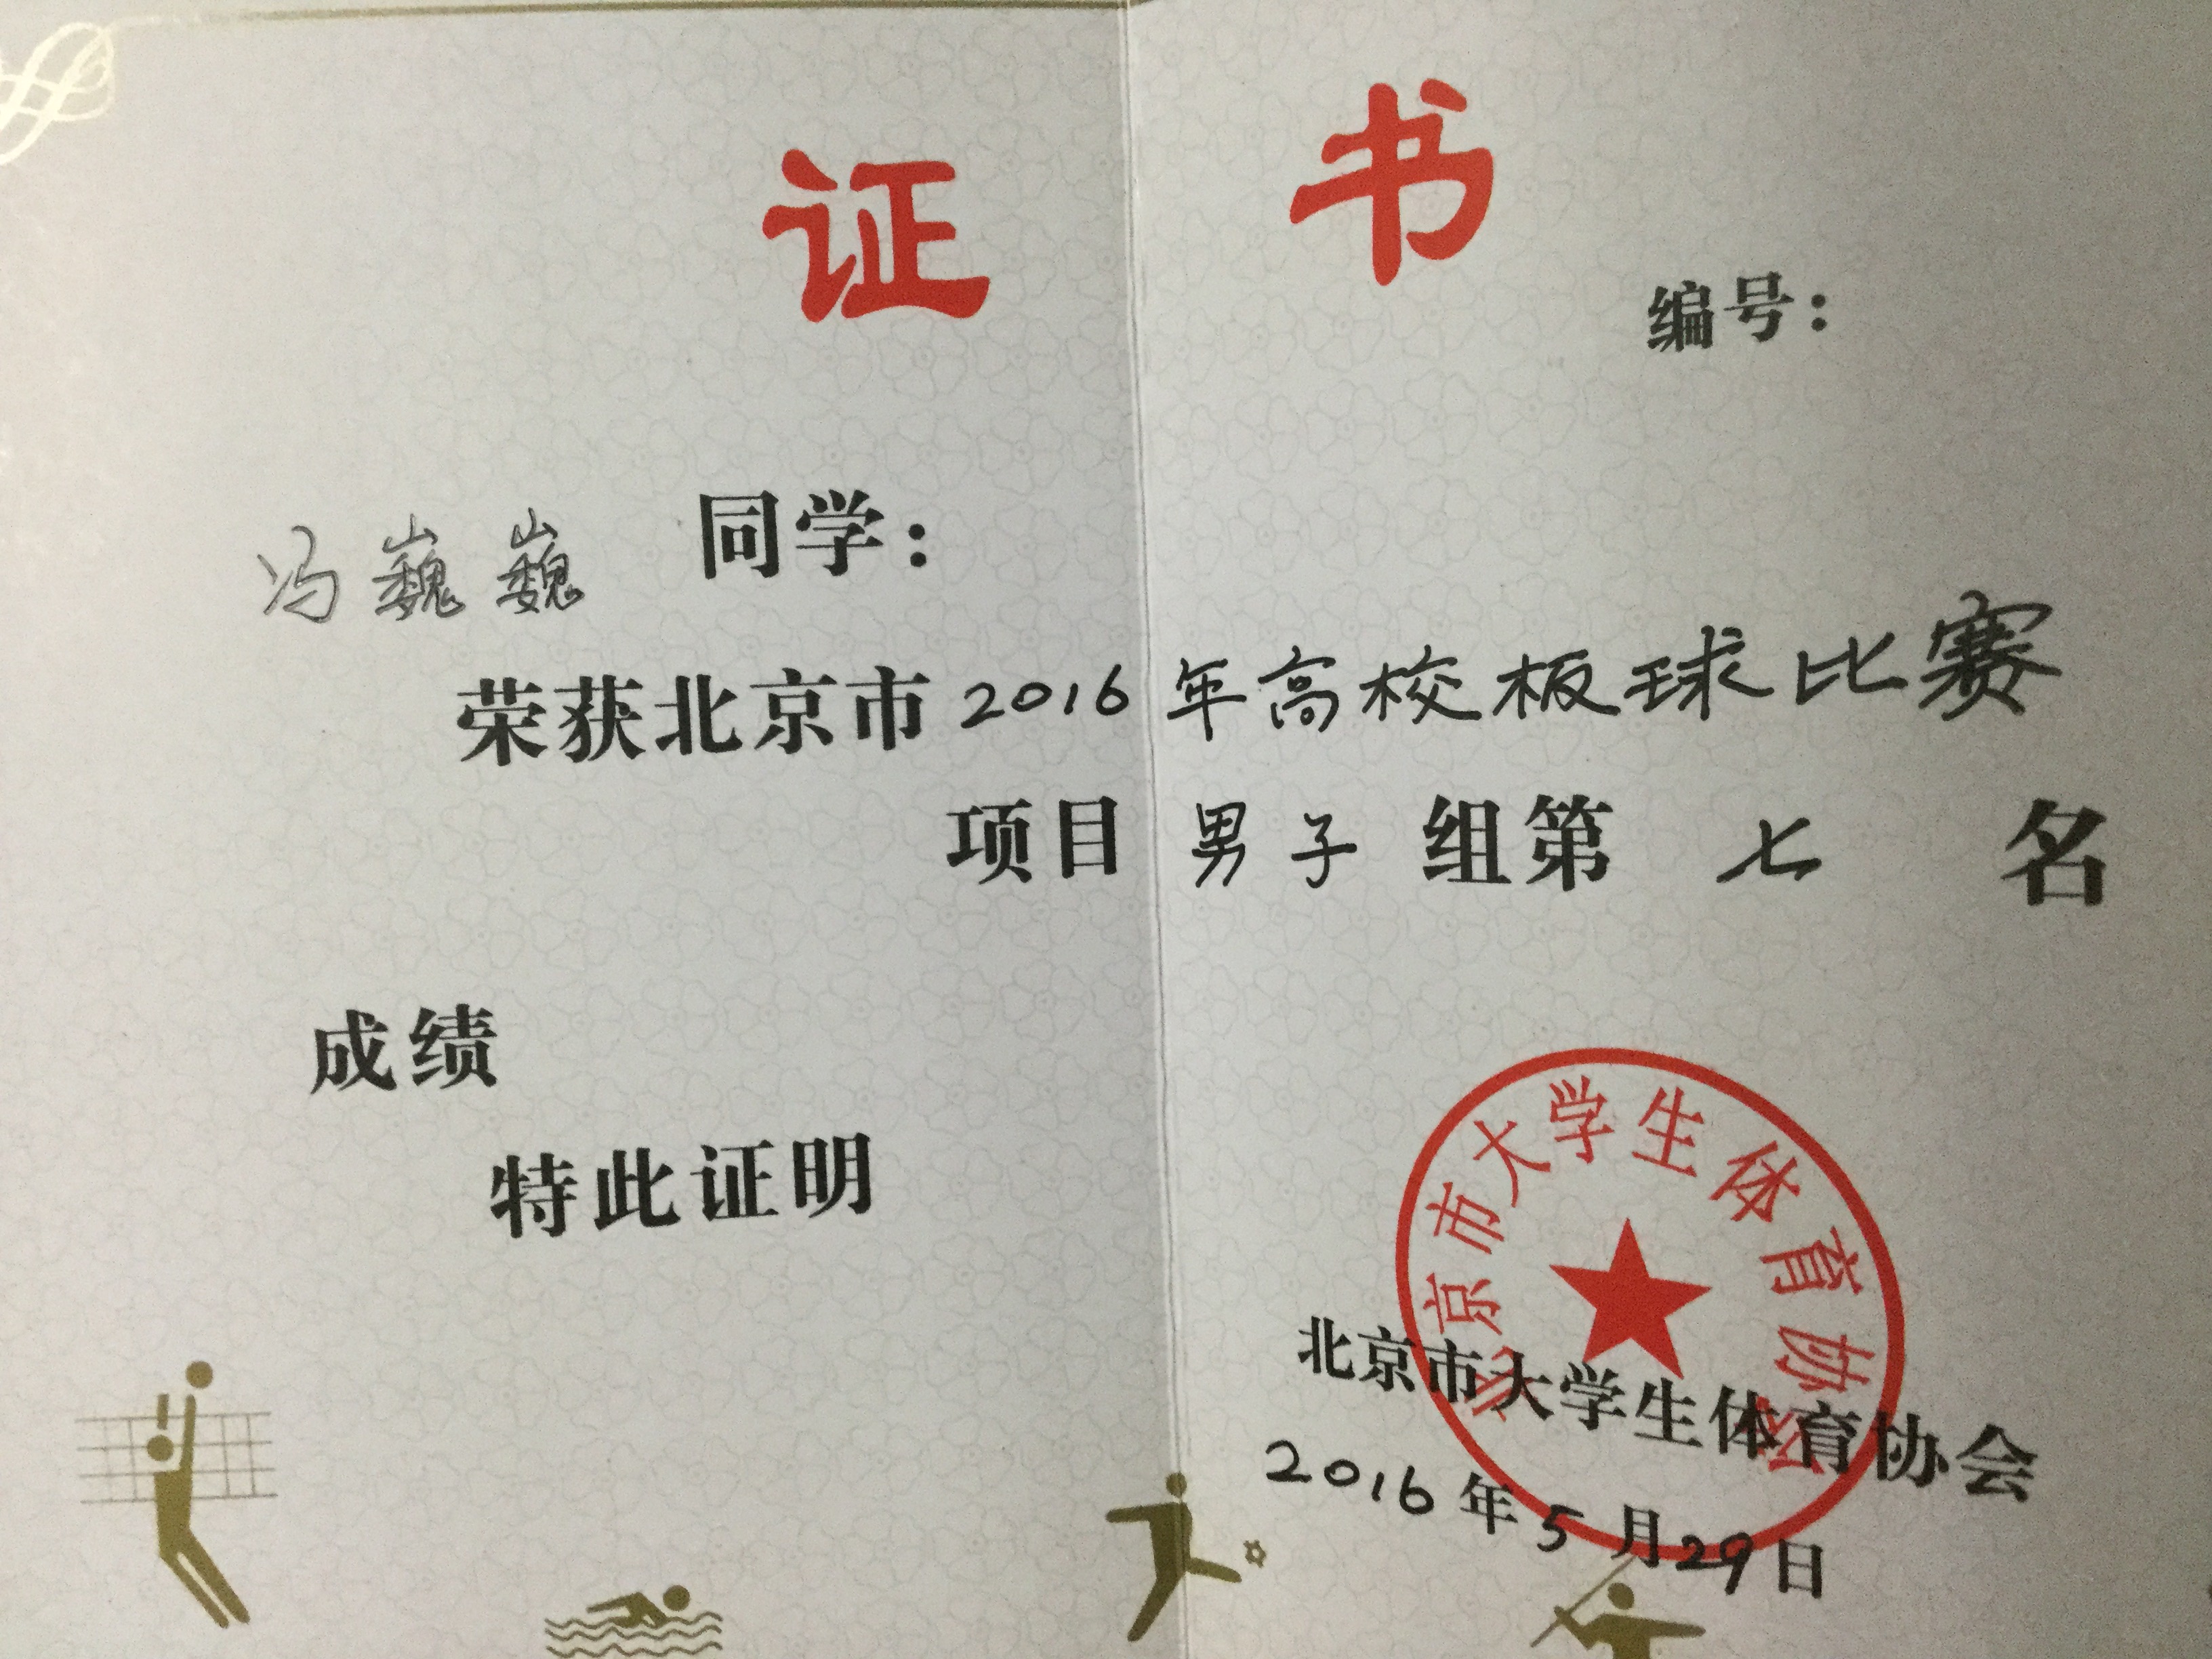 证 书
编号：
冯巍巍 同学：
荣获北京市2016年高校板球比赛
项目 男子 组第 七 名
成绩
特此证明
北京市大学生体育协会
北京市大学生体育协会
2016年5月29日